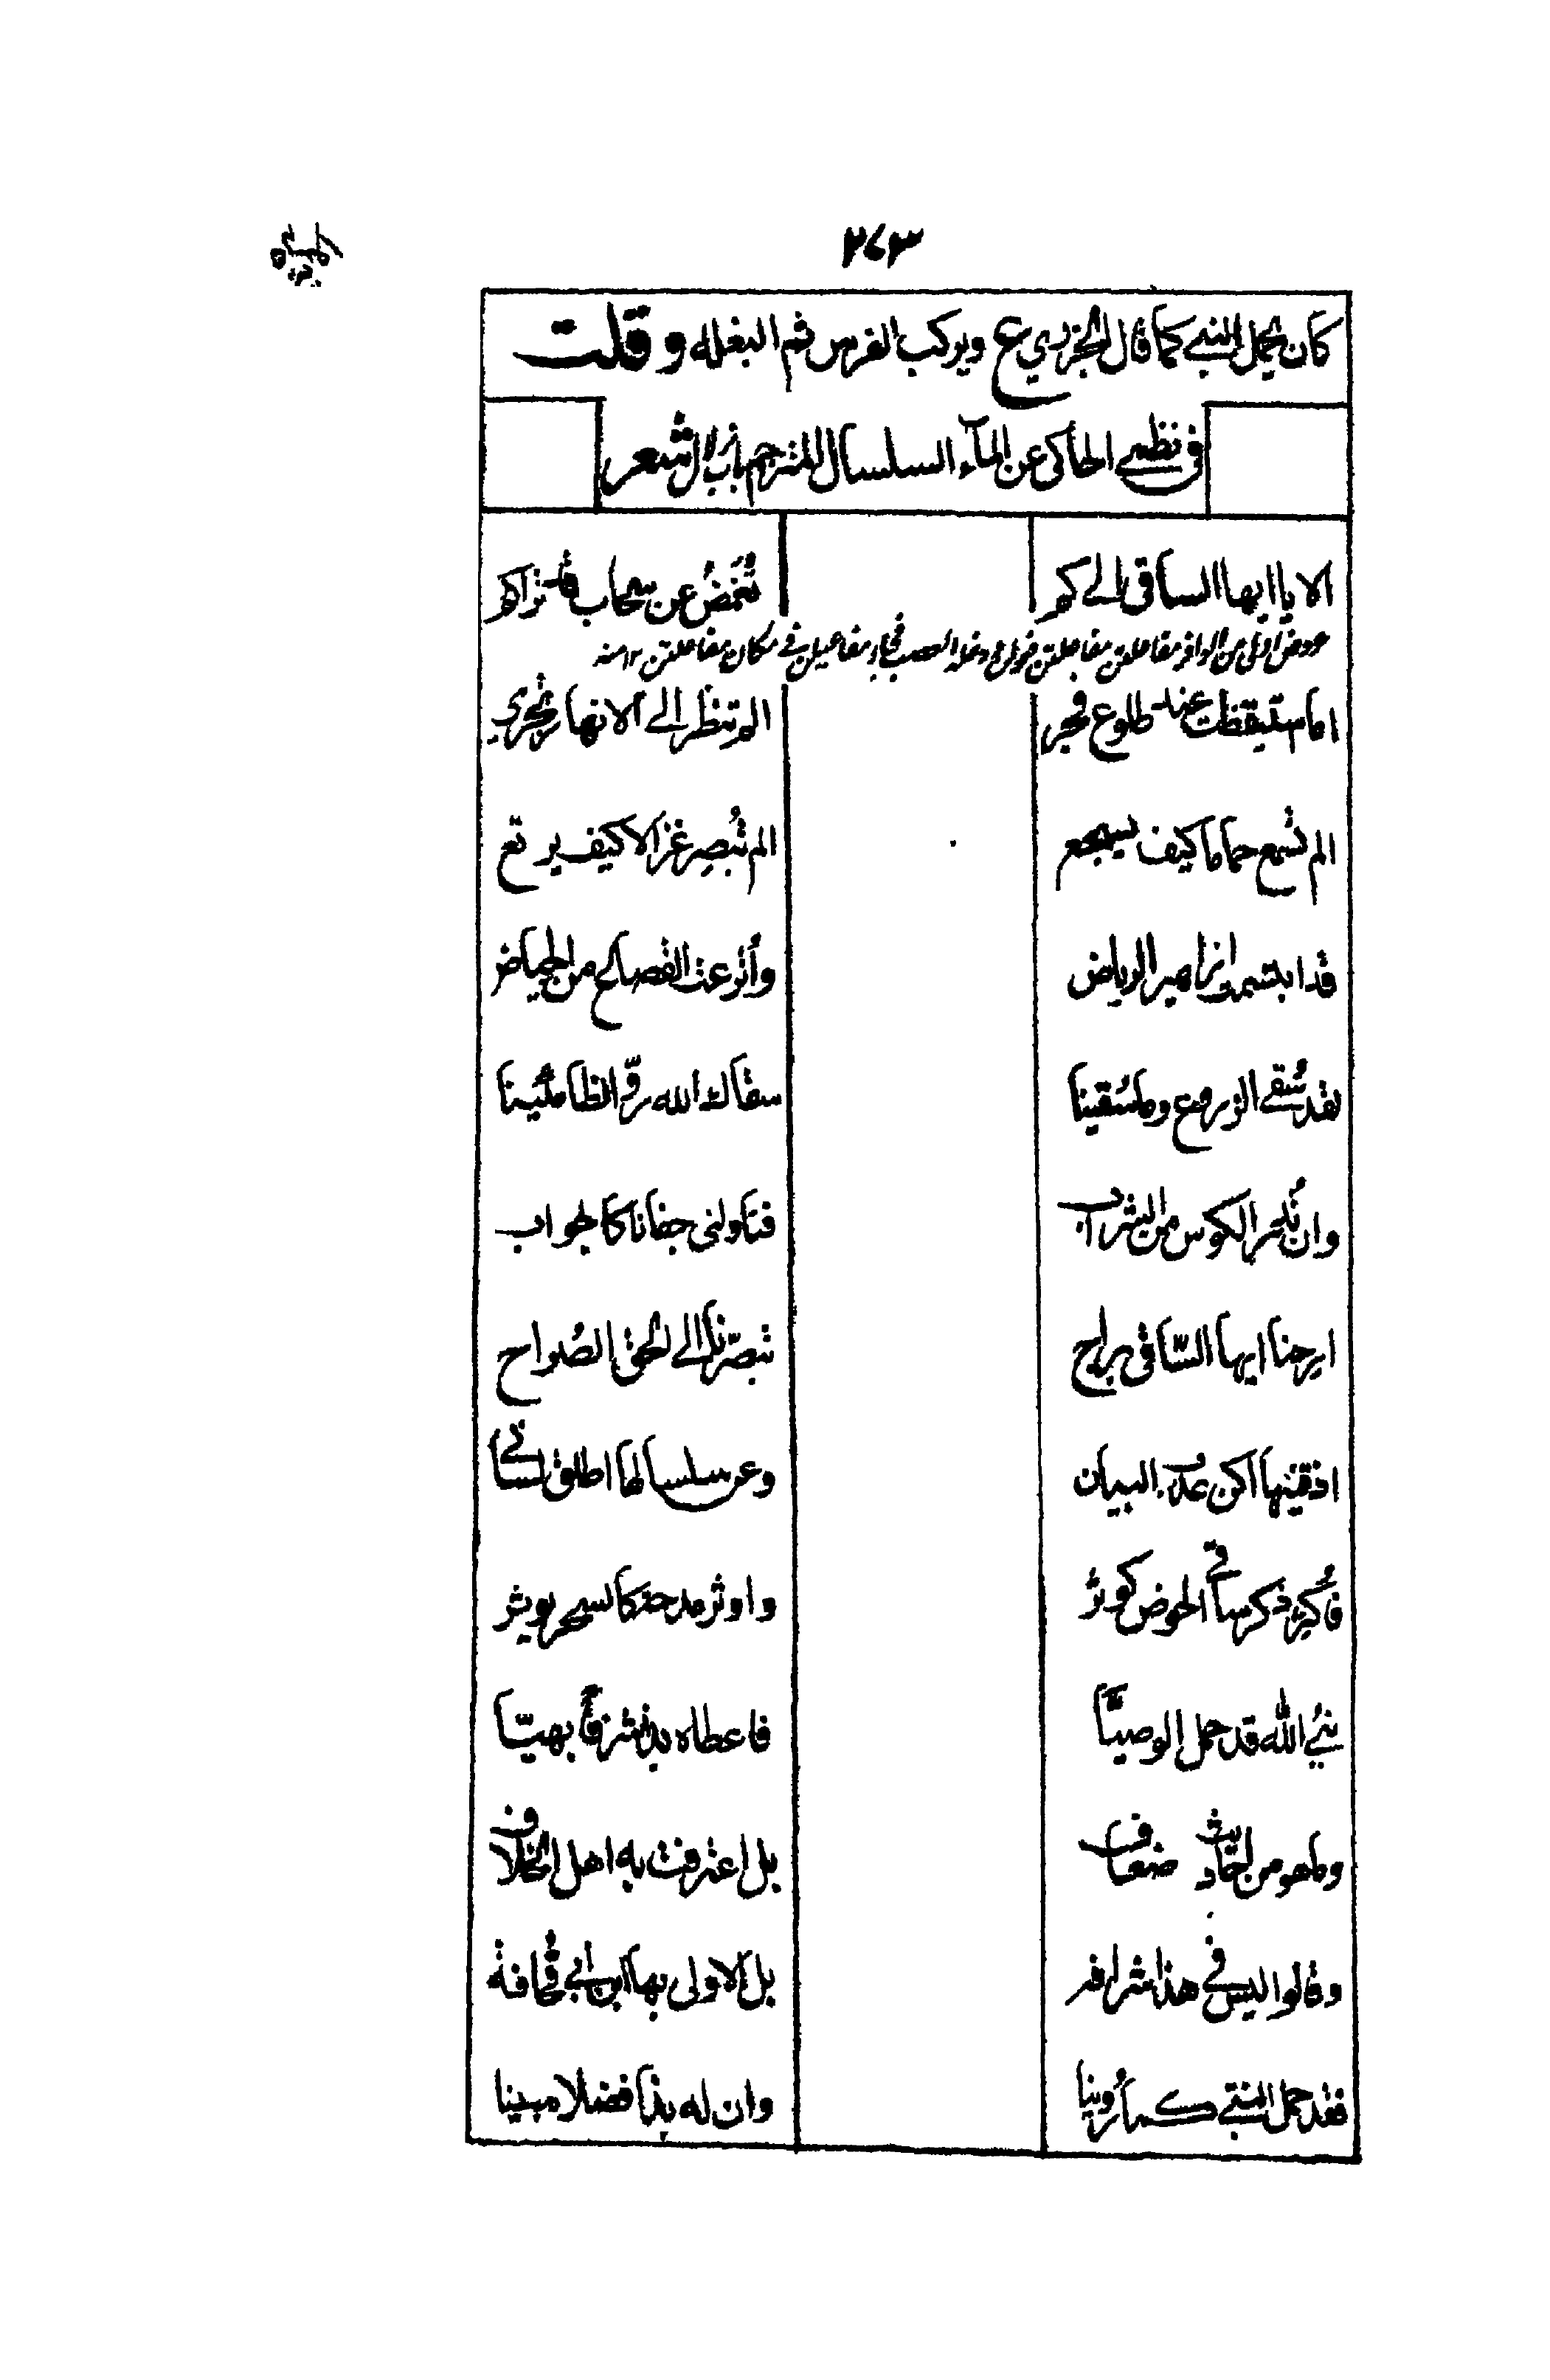 ٢٤٣
كان يحمل النبي كما قال الخزري ع ويركب الفرس ثم البغله وقلت
في نظمي الحاكى عن المآء السلسال الممتزج بالزلال شعر
الا يا ايها الساقى الى كم تُغمّضُ عن سحاب قد تراكم
عروض اولى من الوافر مفاعلتن مفاعلتن فعولن وقد دخله العصب فجاء مفاعيلن في مكان مفاعلتن ١٢ منه
اما استيقظت عند طلوع فجر الم تنظر الى الانهار تجري
الم تسمع حماما كيف يسجع الم تُبصر غزالا كيف يرتع
قد ابتسمت ازاهير الرياض وأُترعت القصاع من الحياض
لقد سُقى الزروع وما سُقينا سقاك الله روّ الظامئينا
وان تُدر الكوس من الشراب فناولنى جفانا كالجواب
ارحنا ايها السّاقى براح تبصّرنا الى الحق الصُراح
اذقنيها اكن عذب البيان وعن سلسالها اطلق لساني
فأُكثر ذكر ساقي الحوض كوثر واوثر مدحة كالسحر يوثر
نبيُ الله قد حمل الوصيّا فاعطاه بذا شرفاً بهيّا
وما هو من احاديث ضعاف بل اعترفت به اهل الخلاف
وقالوا ليس في هذا شرافه بل الاولى بها ابن ابي قُحافة
فقد حمل النبي كما رُوينا وان له بذا فضلا مبينا